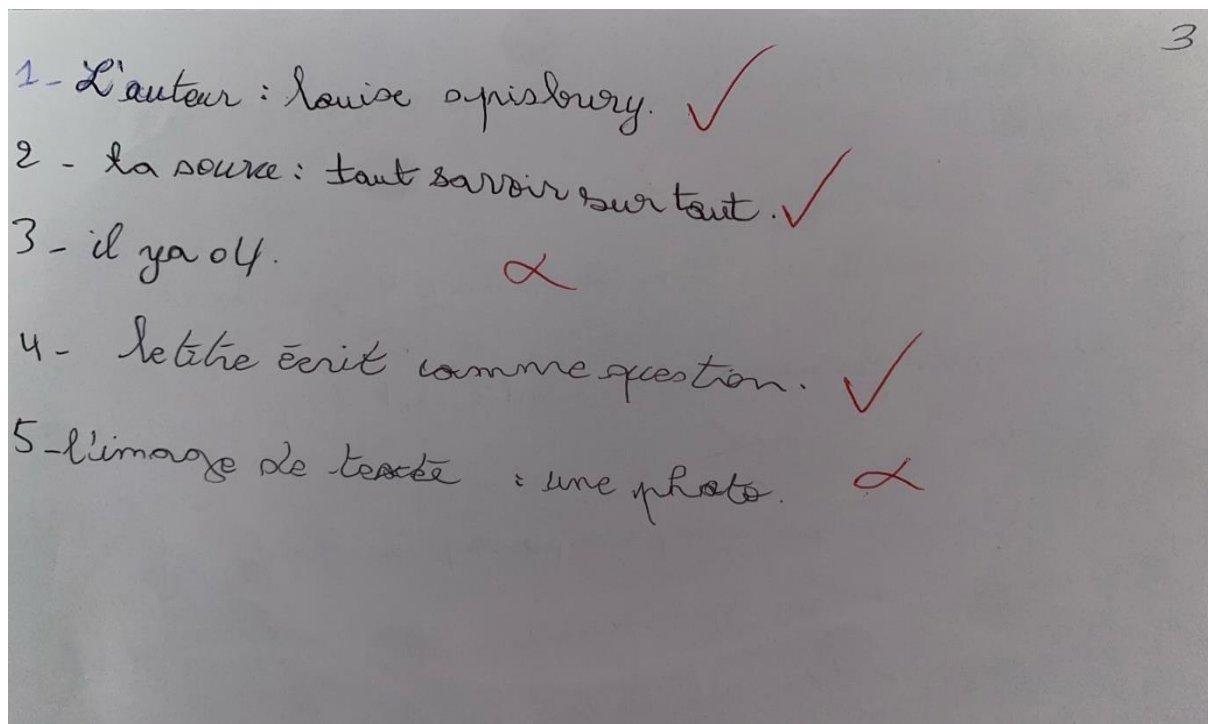 3
1- L'auteur : louise spisbury.
2 - la source : taut savoir sur taut.
3 - il ya 04.
4 - le titre écrit comme question.
5 - l'image de texte : une photo.